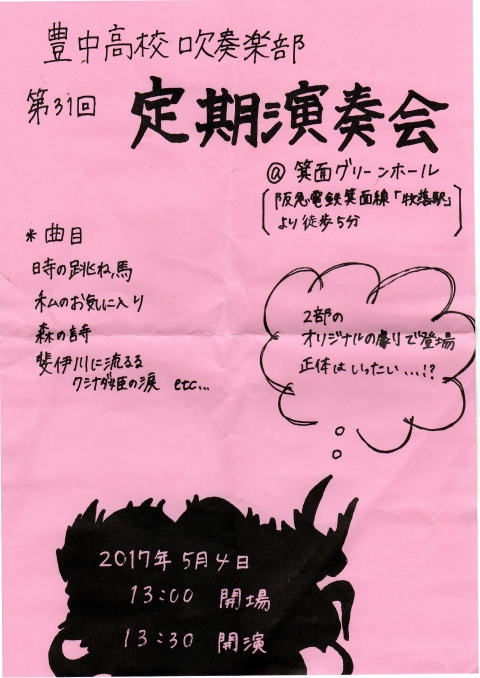 豊中高校 吹奏楽部
第31回 定期演奏会
@ 箕面グリーンホール
[阪急電鉄箕面線「牧落駅」
より徒歩5分]
* 曲目
時の跳ね馬
私のお気に入り
森の詩
斐伊川に流るる
クシナダ姫の涙 etc...
2部の
オリジナルの劇で登場
正体はいったい...!?
2017年 5月4日
13:00 開場
13:30 開演